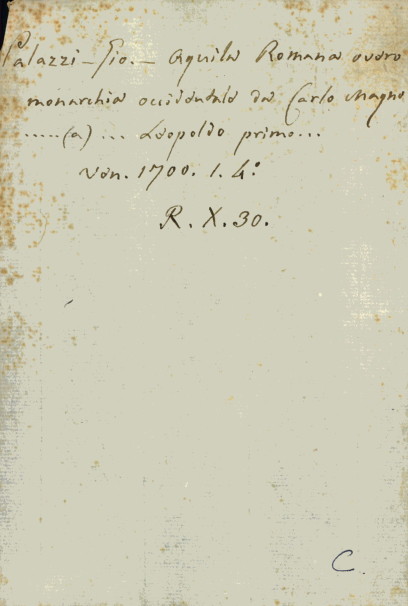 Palazzi - Gio. - Aquila Romana overo
monarchia occidentale da Carlo Magno
.....(a) ... Leopoldo primo...
Ven. 1700. 1. 4.º
R. X. 30.
C.